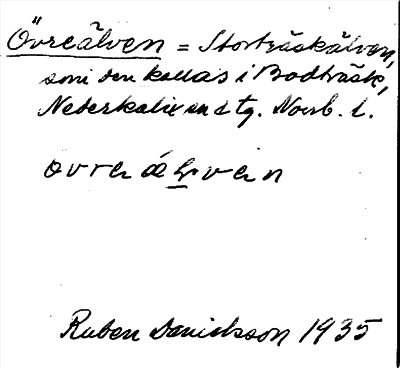 Övreälven = Storträskälven,
som den kallas i Bodträsk,
Nederkalix sn o tg. Norrb. l.
ovreälvein
Ruben Danielsson 1935